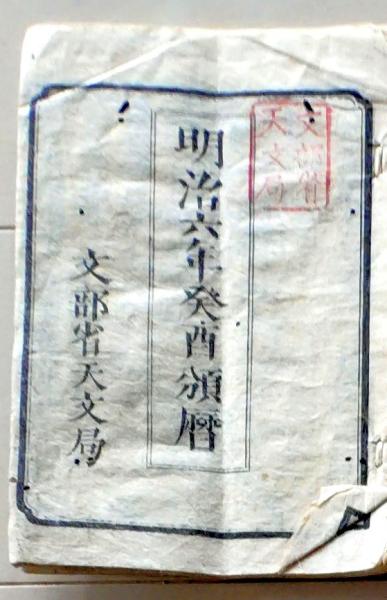 文部省
天文局
明治六年癸酉頒暦
文部省天文局